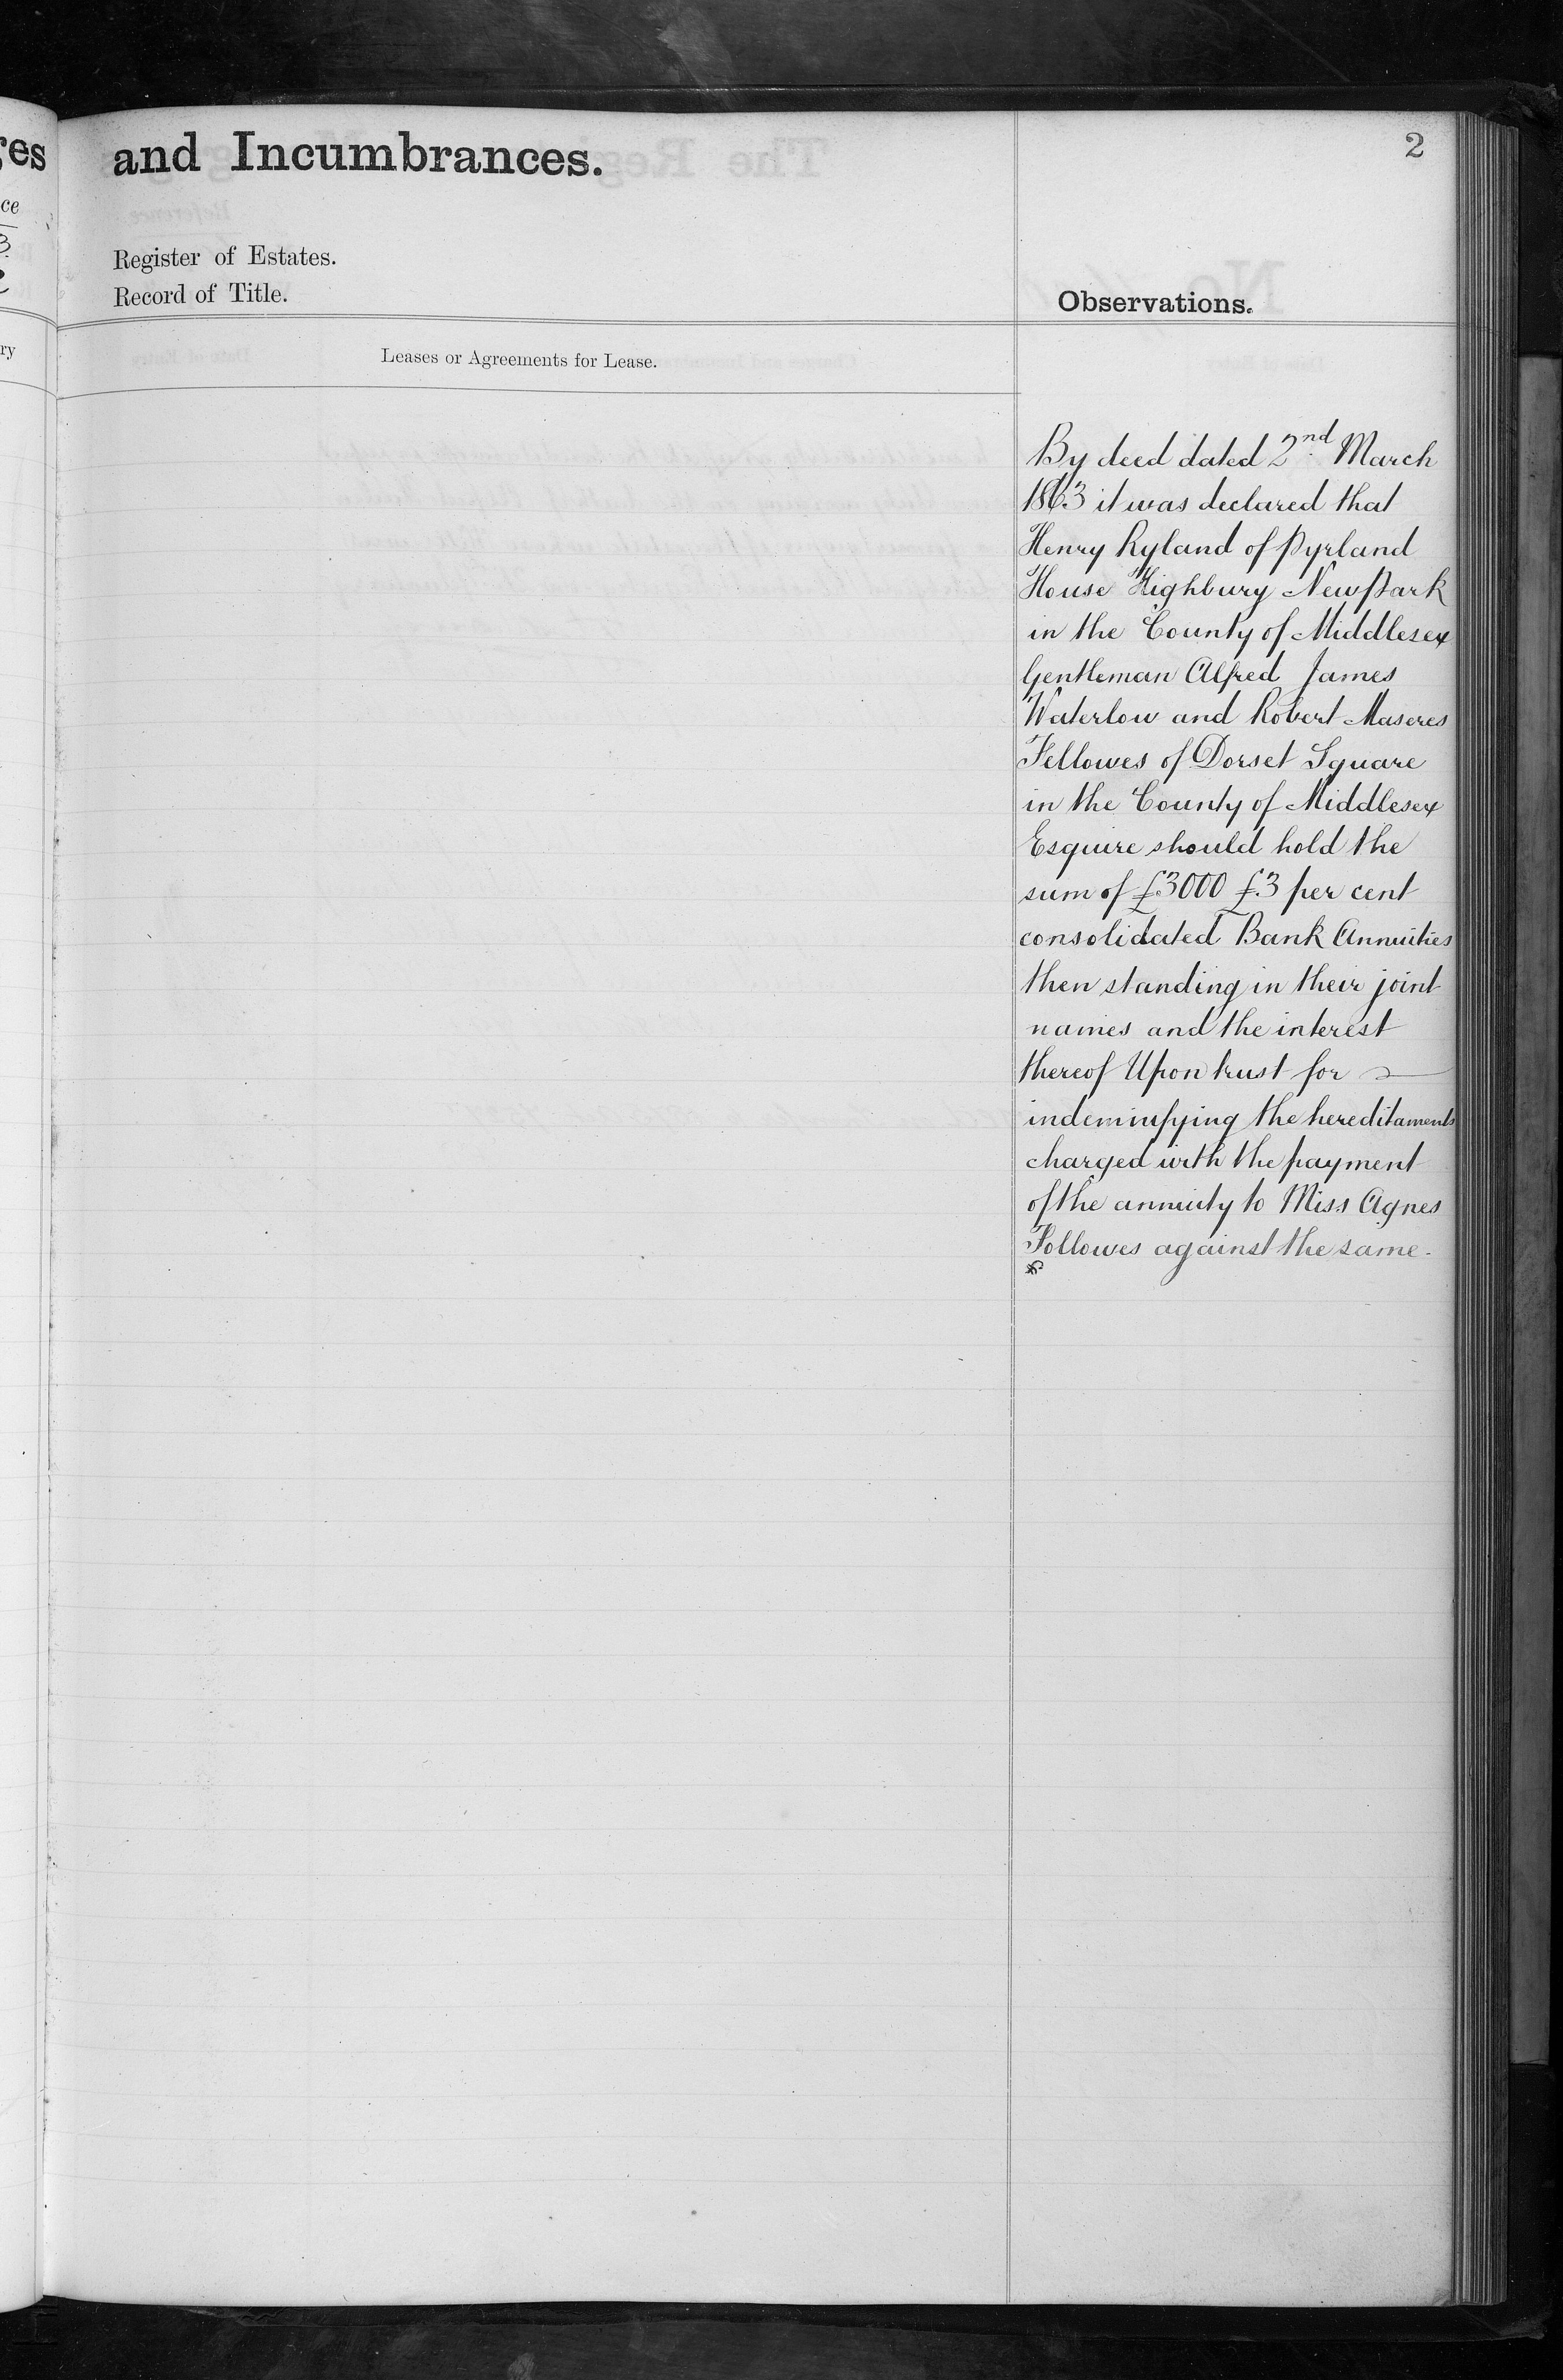 ges
ce
3
ry
and Incumbrances.
2
Register of Estates.
Record of Title.
Observations.
Leases or Agreements for Lease.
By deed dated 2nd March
1863 it was declared that
Henry Ryland of Pyrland
House Highbury New Park
in the County of Middlesex
Gentleman Alfred James
Waterlow and Robert Maseres
Fellowes of Dorset Square
in the County of Middlesex
Esquire should hold the
sum of £3000 £3 per cent
consolidated Bank Annuities
then standing in their joint
names and the interest
thereof Upon trust for
indemnifying the hereditaments
charged with the payment
of the annuity to Miss Agnes
Followes against the same.